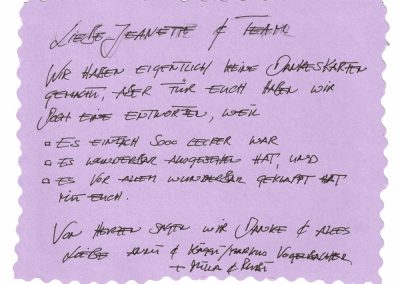 Liebe Jeanette & Team
Wir haben eigentlich keine Dankeskarten
gemacht, aber für euch haben wir
doch eine entworfen, weil
▫ Es einfach sooo lecker war
▫ Es wunderbar ausgesehen hat, und
▫ Es vor allem wunderbar geklappt hat
mit euch.
Von Herzen sagen wir Danke & alles
Liebe & Markus Vogelbacher
+